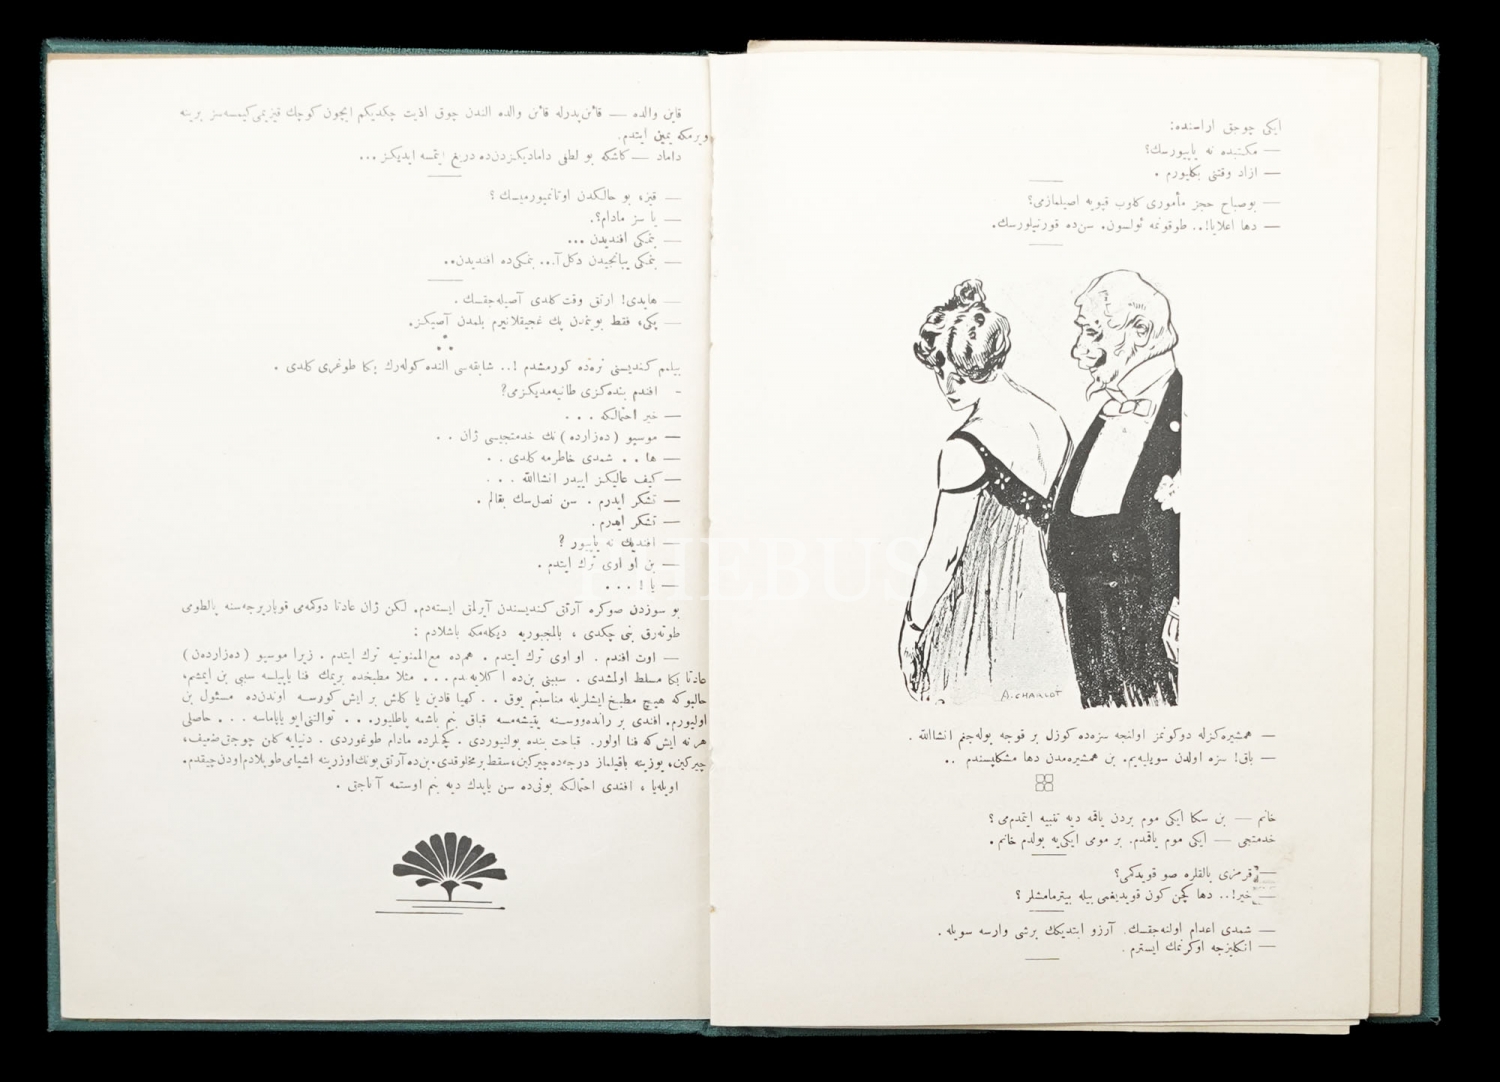 ایکی چوجق اراسنده:
— مکتبده نه یاپیورسك؟
— ازاد وقتنی بکلیورم .
— بوصباح حجز مأموری کلوب قپویه اصیلمازمی؟
— دها اعلایا!.. طوقونمه ئولسون. سن‌ده قورتیلورسك.
A. CHARLOT
— همشیره‌کزله دوکونمز اولنجه سزه‌ده کوزل بر قوجه بوله‌جغم انشاالله .
— باق! سزه اولدن سویلیه‌یم. بن همشیره‌مدن دها مشکلپسندم ..
خانم — بن سکا ایکی موم بردن یاقمه دیه تنبیه ایتمدم‌می؟
خدمتجی — ایکی موم یاقمدم. بر مومی ایکی‌یه بولدم خانم.
— قرمزی بالقلره صو قویدکمی؟
— خیر!.. دها کچن کون قویدیغمی بیله بیترمامشلر؟
— شمدی اعدام اولنه‌جقسك. آرزو ایتدیکك برشی وارسه سویله .
— انکلیزجه اوکرنمك ایسترم .
قاین والده — قائن‌پدرله قائن والده الندن چوق اذیت چکدیکم ایچون کوچك قیزیمی کیمسه‌سز برینه
ویرمکه یمین ایتدم.
داماد — کاشکه بو لطفی دامادیکزدن‌ده دریغ ایتمسه ایدیکز ...
— قیز، بو حالکدن اوتانمیورمیسك؟
— یا سز مادام؟.
— بنمکی افندیدن ...
— بنمکی یبانجیدن دکل آ... بنمکی‌ده افندیدن..
— هایدی! ارتق وقت کلدی آصیله‌جقسك .
— پکی، فقط بوینمدن پك غجیقلانیرم بلمدن آصیکز.
بیلمم کندیسنی نره‌ده کورمشدم !.. شابقه‌سی النده کوله‌رك بکا طوغری کلدی .
- افندم بنده‌کزی طانیه‌مدیکزمی؟
— خیر احتمالکه . . .
— موسیو (ده‌زارده) نك خدمتجیسی ژان . .
— ها . . شمدی خاطرمه کلدی . .
— کیف عالیکز اییدر انشاالله . . .
— تشکر ایدرم . سن نصل‌سك بقالم .
— تشکر ایدرم .
— افندیك نه یاپیور ؟
— بن او اوی ترك ایتدم .
— یا ! . . .
بو سوزدن صوکره آرتق کندیسندن آیرلمق ایسته‌دم. لکن ژان عادتا دوکمه‌می قوپاریرجه‌سنه پالطومی
طوته‌رق بنی چکدی ، بالمجبوریه دیکله‌مکه باشلادم :
— اوت افندم . او اوی ترك ایتدم . هم‌ده مع‌الممنونیه ترك ایتدم . زیرا موسیو (ده‌زارده‌ن)
عادتا بکا مسلط اولمشدی . سببنی بن‌ده ا کلایه‌مدم... مثلا مطبخده بریمك فنا یاپیلسه سببی بن ایمشم،
حالبوکه هیچ مطبخ ایشلریله مناسبتم یوق . . کهیا قادین یا کلش بر ایش کورسه اوندن‌ده مسئول بن
اولیورم. افندی بر رانده‌ووسنه یتیشه‌مسه قباق بنم باشمه پاطلیور. . . توالتنی ایو یاپاماسه . . . حاصلی
هر نه ایش که فنا اولور. قباحت بنده بولنیوردی . کچلرده مادام طوغوردی . دنیایه کلن چوجق ضعیف،
چیرکین، یوزینه باقیلماز درجه‌ده چیرکین، سقط بر مخلوقدی. بن‌ده آرتق بونك اوزرینه اشیامی طوپلادم اودن چیقدم.
اویله‌یا ، افندی احتمالکه بونی‌ده سن یاپدك دیه بنم اوستمه آتاجق .
PHEBUS